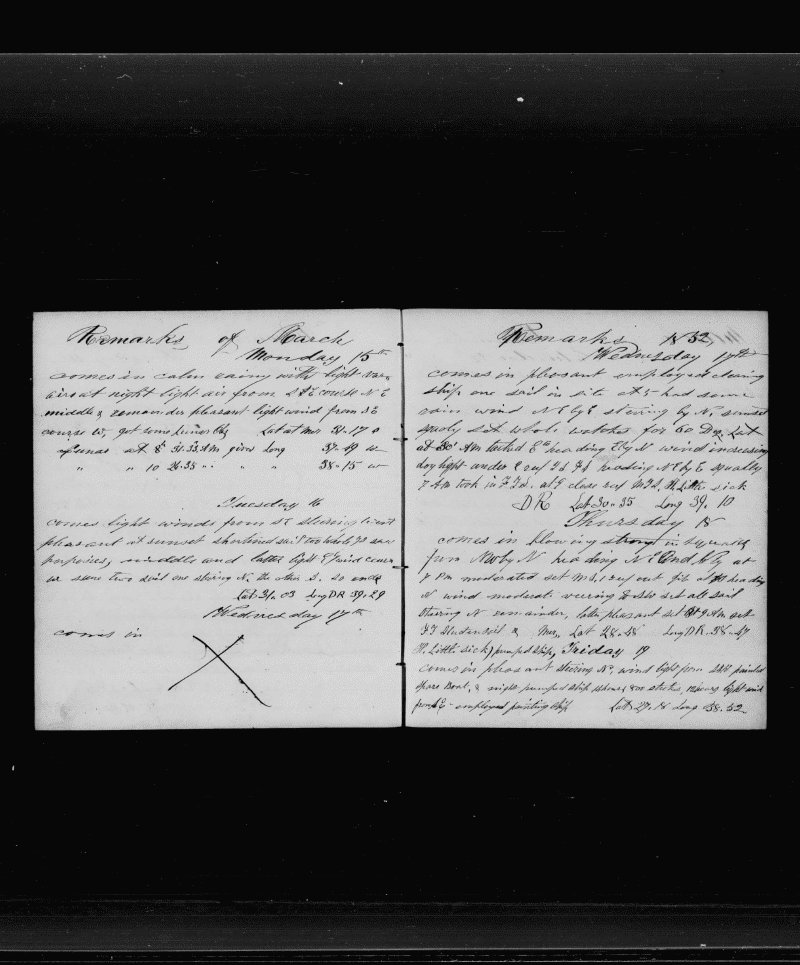 Remarks of March
Monday 15th
comes in calm rainy with light
airs at night light air from S & E course N E
middle & remainder pleasant light wind from S E
course W, got some Lunar Lat at Mer 31-17
Lunar at 8 31.33 Am gives Long 37-49 W
" " 10 26.35 " " " 38-15 W
Tuesday 16
comes light winds from SE steering
pleasant at sunset shortened sail
purposes, middle and latter light
we saw two sail one steering N, the other S. so ends
Lat 31.03 Long DR 39.29
Wednesday 17th
comes in
X
Remarks 1852
Wednesday 17th
comes in pleasant employed cleaning
ship one sail in site at 5 had some
rain wind N E by E stering by N, sunset
squaly set whole watches for
at Am tacked heading E by N wind increasing
daylight under heading N E by E squally
Am took in at 9 close reef H. Little sick
DR Lat 30-35 Long 39.10
Thursday 18
comes in blowing strong in squalls
from heading N E at
Pm moderated set heading
N wind moderate veering set all sail
stering N remainder, latter pleasant set Am set
Studensail & Mer, Lat 28.48 Long DR-38-47
H. Little sick) pumped ship, Friday 19
comes in pleasant stering N, wind light from painted
spare Boat, & night pumped ship strokes, light wind
from employed painting ship Lat 27.18 Long 38.52